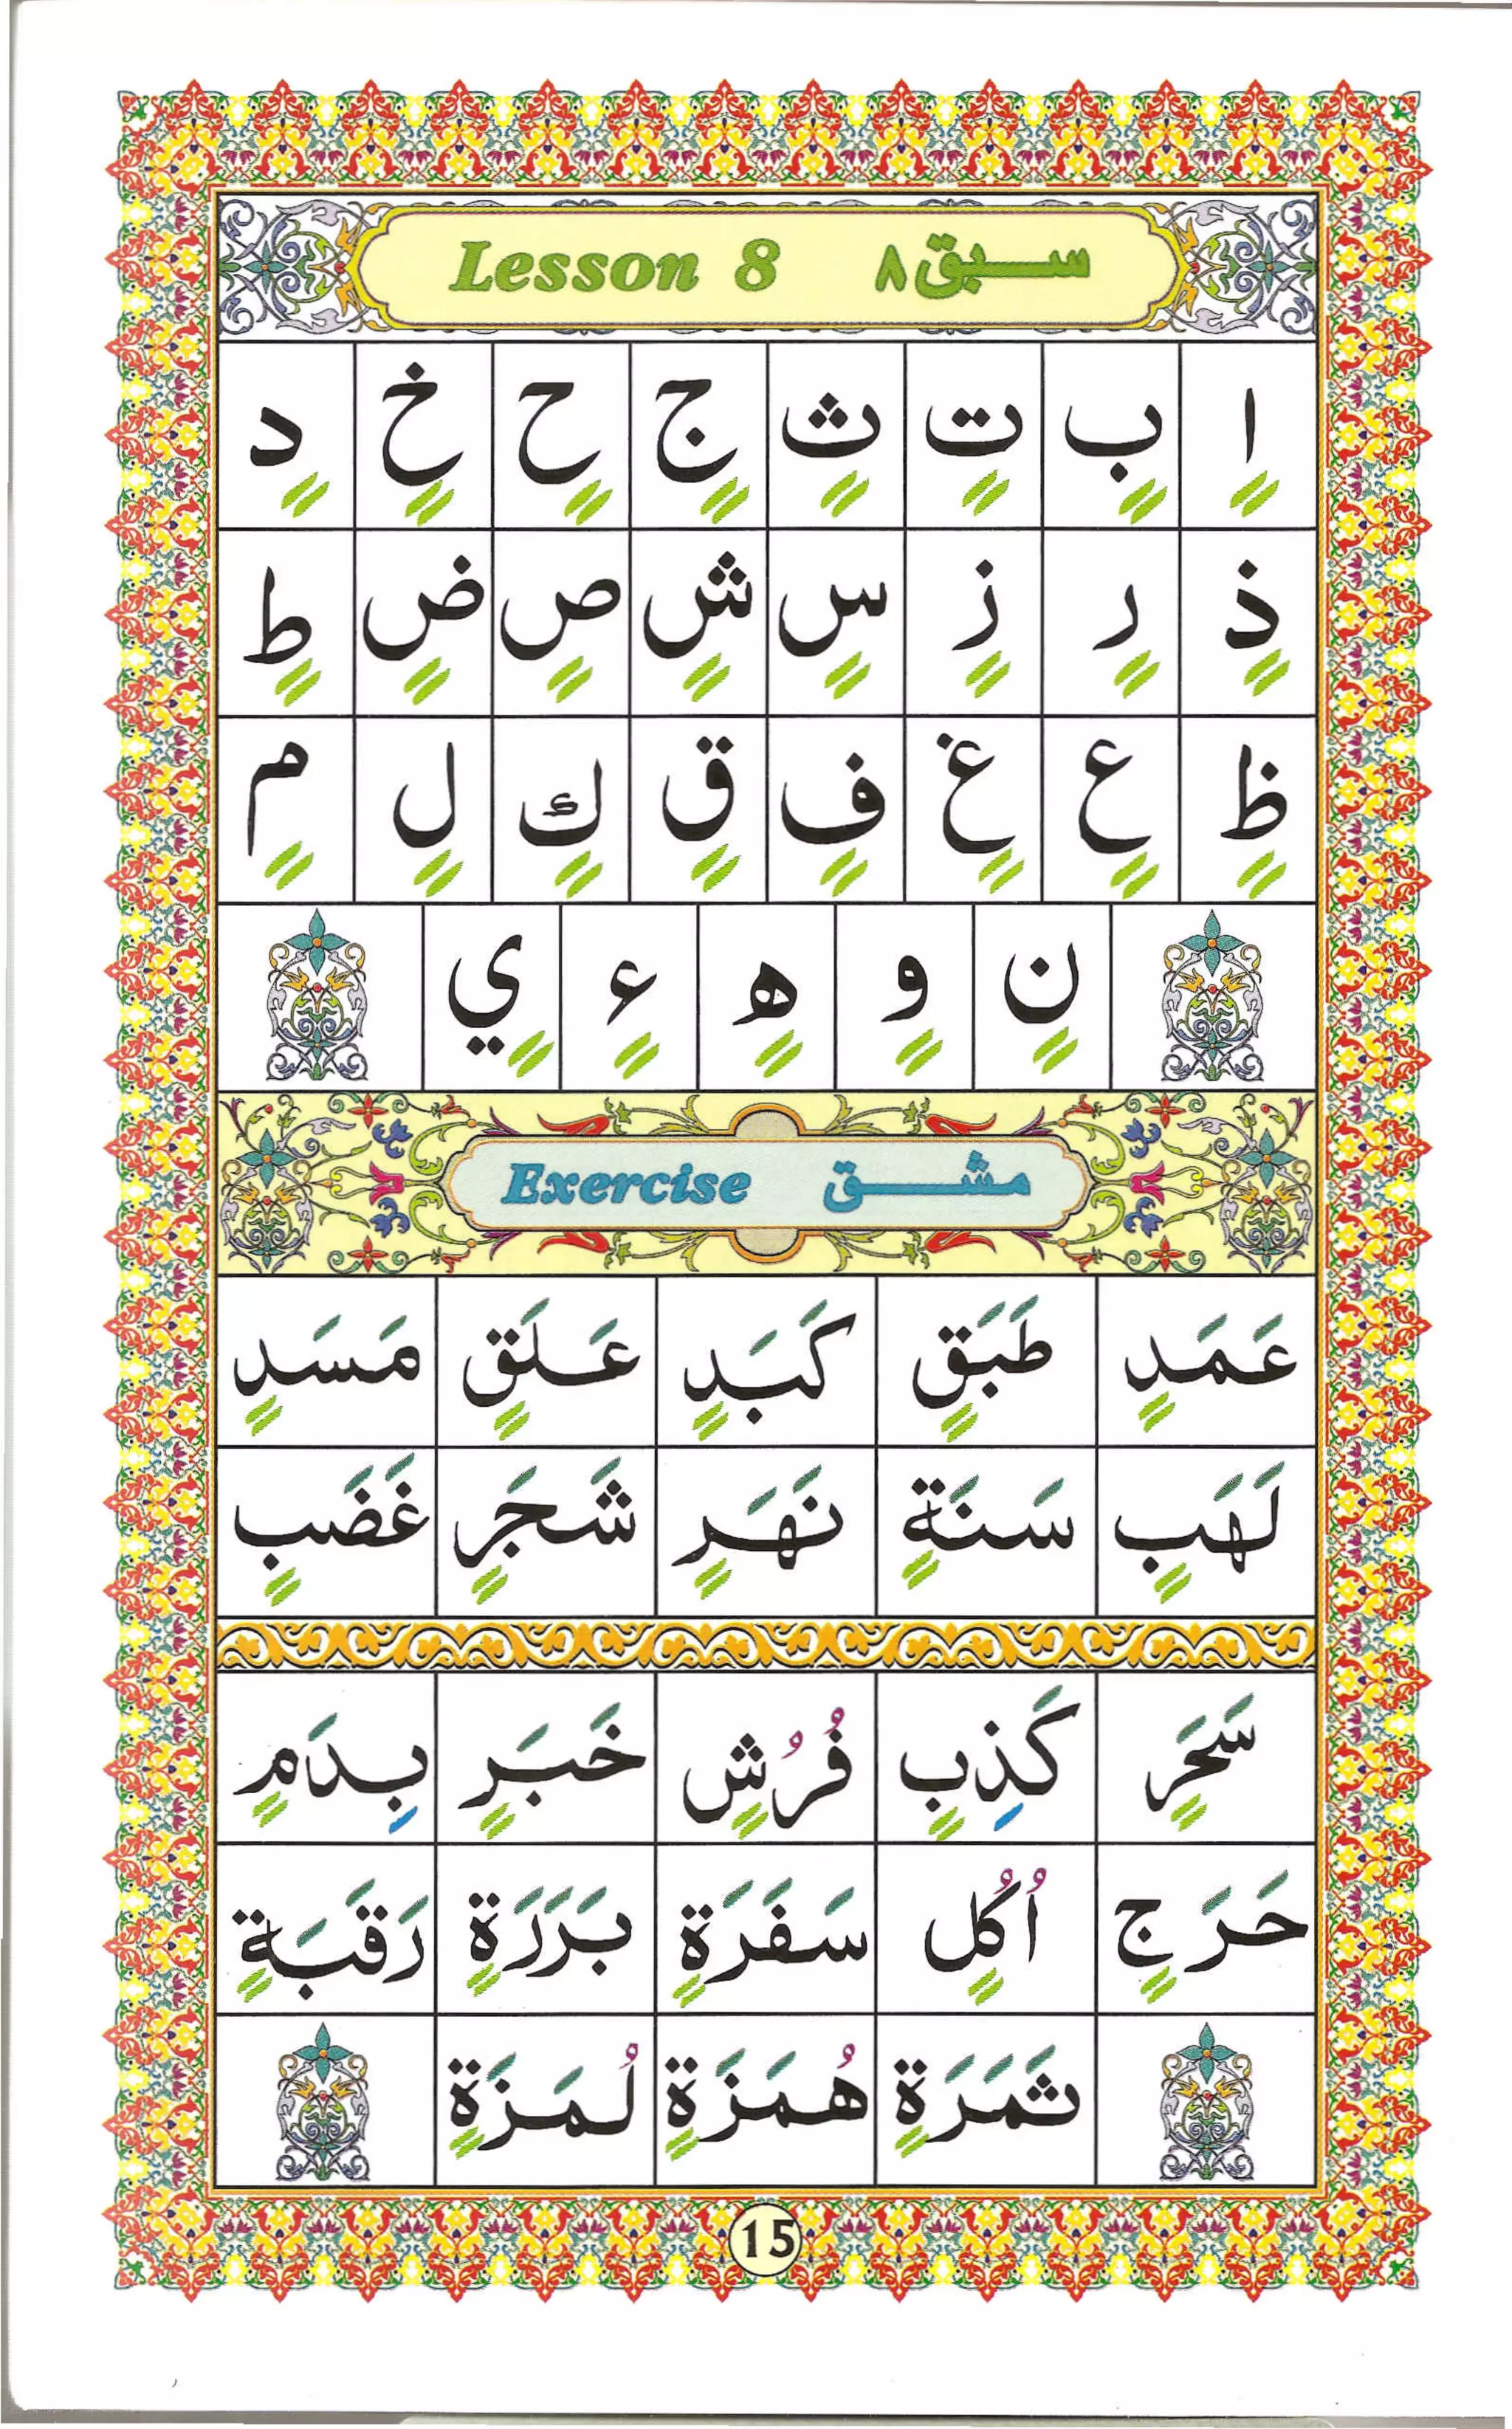 Lesson 8 سبق ٨
اٍ بٍ تٍ ثٍ جٍ حٍ خٍ دٍ
ذٍ رٍ زٍ سٍ شٍ صٍ ضٍ طٍ
ظٍ عٍ غٍ فٍ قٍ كٍ لٍ مٍ
نٍ وٍ هٍ ءٍ يٍ
Exercise مشق
عَمَدٍ طَبَقٍ كَبَدٍ عَلَقٍ مَسَدٍ
لَهَبٍ سَنَةٍ نَهَرٍ شَجَرٍ غَضَبٍ
سَحَرٍ كَذِبٍ فُرُشٍ خَبَرٍ بِدَمٍ
حَرَجٍ اُكُلٍ سَفَرَةٍ بَرَرَةٍ رَقَبَةٍ
ثَمَرَةٍ هُمَزَةٍ لُمَزَةٍ
15